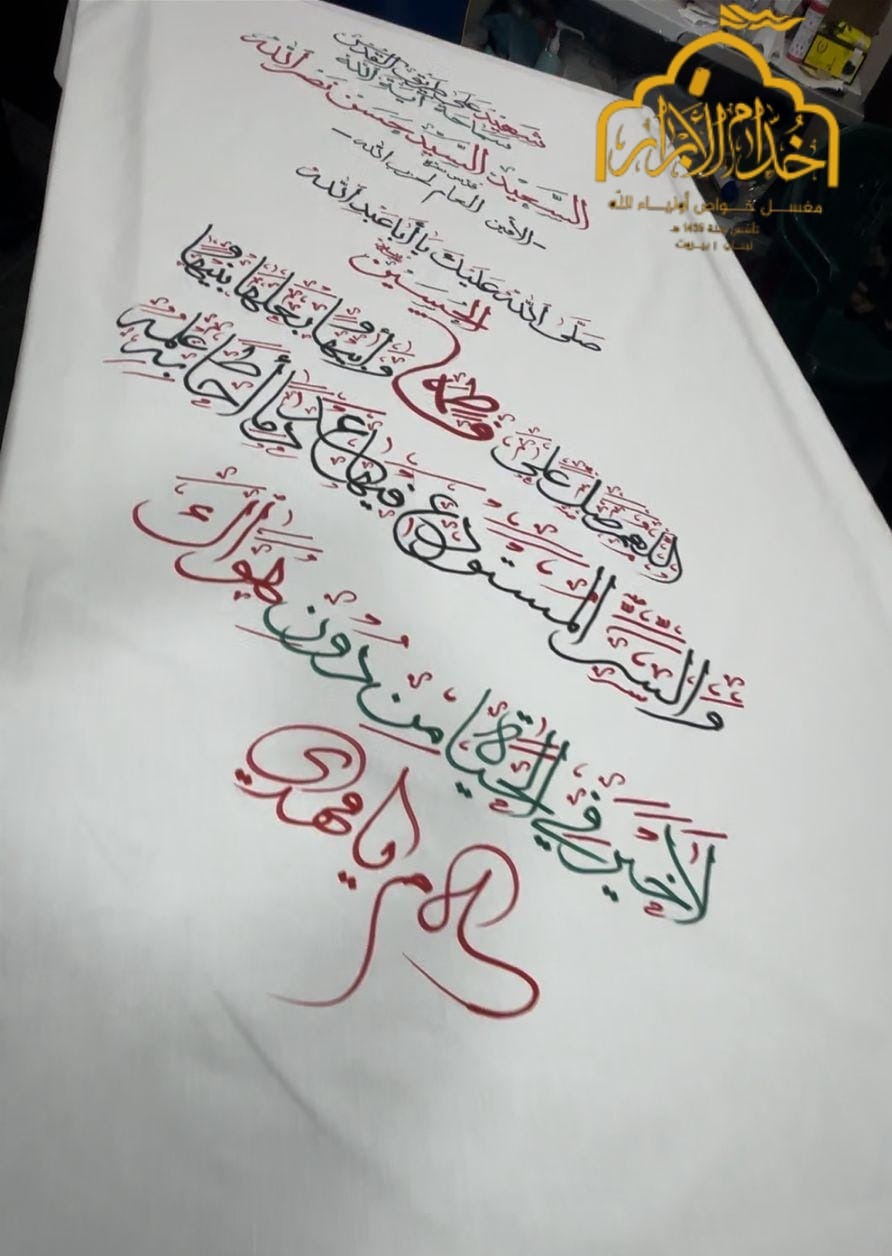 شهيد على طريق القدس
سماحة آية الله
السعيد السيد حسن نصر الله
قدس سره
-الأمين العام لحزب الله-
صلى الله عليك يا أبا عبد الله
الحسين
اللهم صل على فاطمة وأبيها وبعلها وبنيها
والسر المستودع فيها عدد ما أحاط به علمك
لا خير في الحياة من دون هواك
يا مهدي
خدام الأبرار
مغسل خواص أولياء الله
تأسس سنة 1435 هـ
لبنان | بيروت